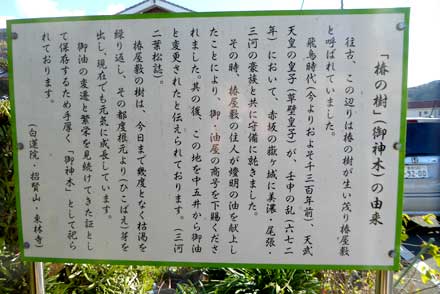 「椿の樹」(御神木)の由来
往古、この辺りは椿の樹が生い茂り椿屋敷
と呼ばれていました。
飛鳥時代(今よりおよそ千三百年前)、天武
天皇の皇子(草壁皇子)が、壬申の乱(六七二
年)において、赤坂の嶽ヶ城に美濃・尾張・
三河の豪族と共に守備に就きました。
その時、椿屋敷の住人が燈明の油を献上し
たことにより、御・油屋の商号を下賜くださ
れました。其の後、この地を中五井から御油
と変更されたと伝えられております。(三河
二葉松誌)。
椿屋敷の樹は、今日まで幾度となく枯渇を
繰り返し、その都度根元より(ひこばえ)芽を
出し、現在でも元気に成長しています。
御油の変遷と繁栄を見続けてきた証とし
て保存するため手厚く「御神木」として祀ら
れております。
(白蓮院・招賢山・東林寺)